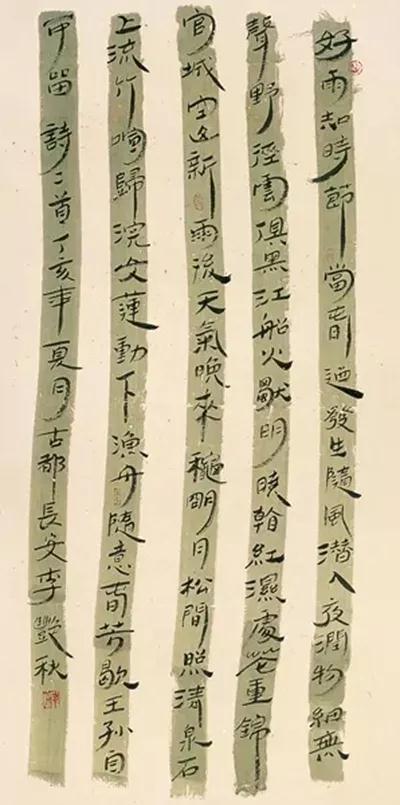 好雨知時節當春迺發生隨風潛入夜潤物細無
聲野徑雲俱黑江船火獸明曉看紅濕處花重錦
官城空山新雨後天氣晚來穐明月松間照清泉石
上流竹喧歸浣女蓮動下漁舟隨意春芳歇王孫自
可留詩二首丁亥年夏月古都長安李豔秋